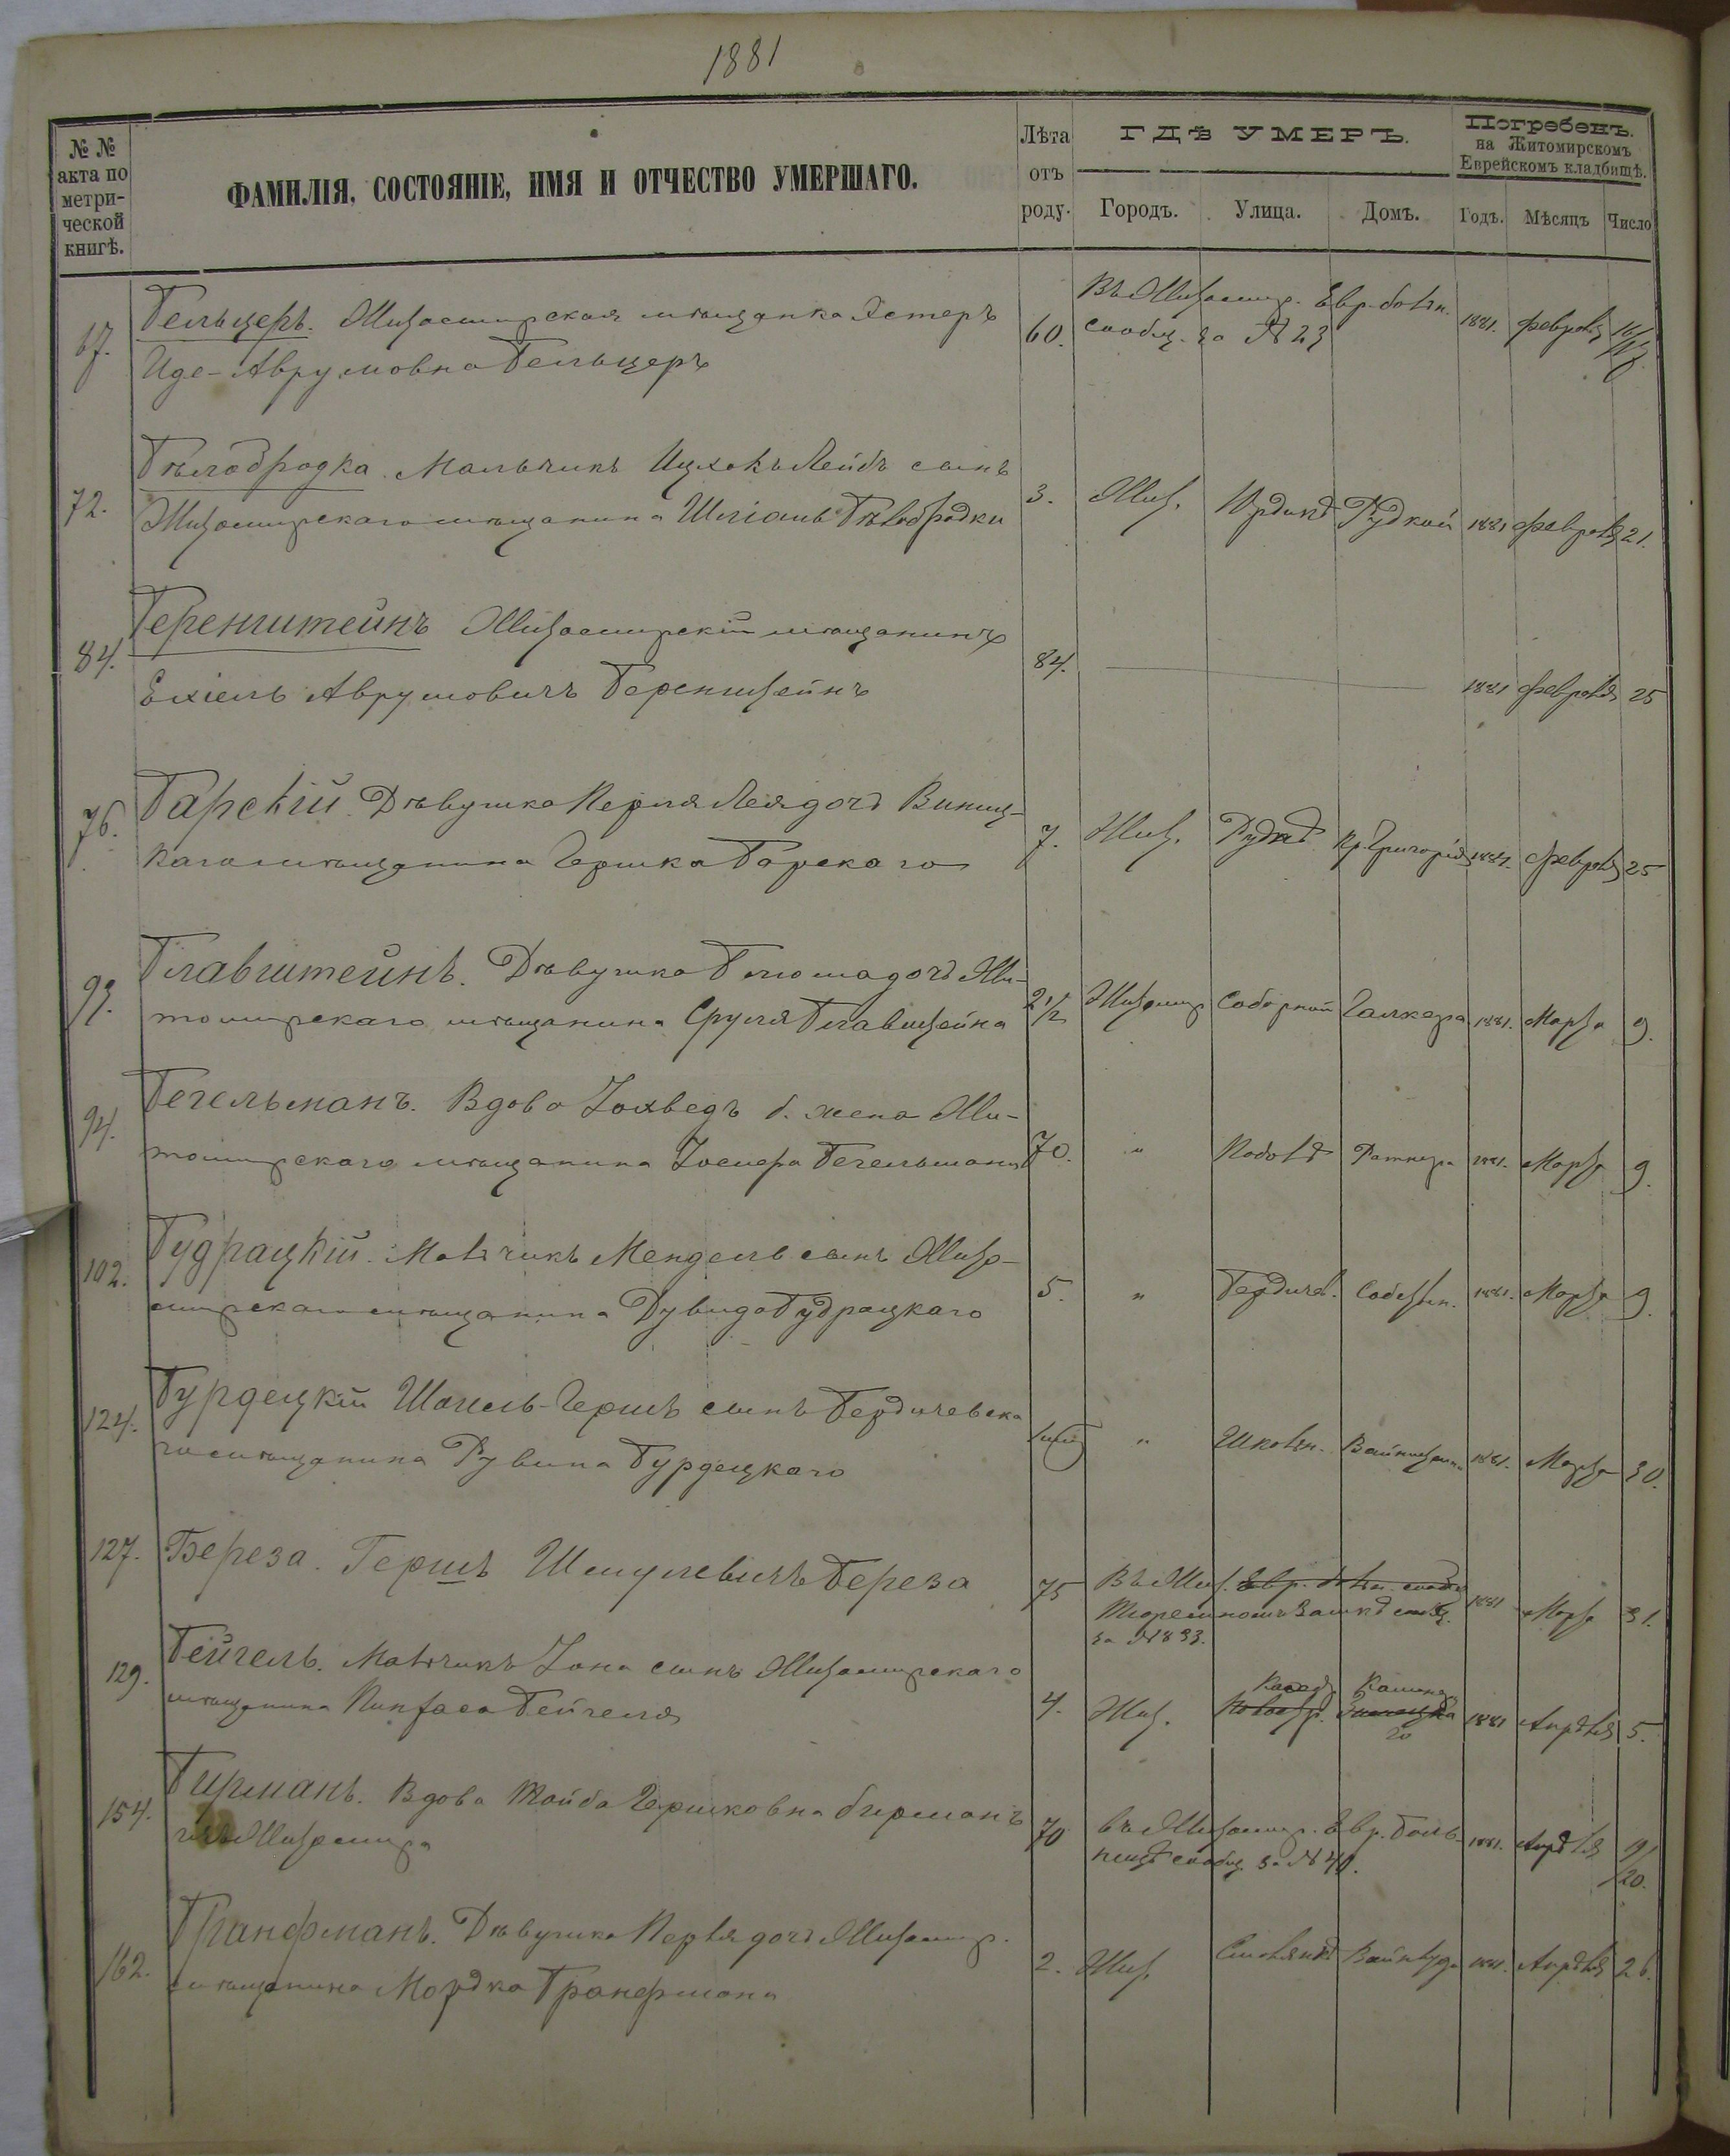 1881
№ №
акта по
метри-
ческой
книгѣ.
ФАМИЛІЯ, СОСТОЯНІЕ, ИМЯ И ОТЧЕСТВО УМЕРШАГО.
Лѣта
отъ
роду.
ГДѢ УМЕРЪ.
Городъ.
Улица.
Домъ.
Погребенъ.
на Житомирскомъ
Еврейскомъ кладбищѣ.
Годъ.
Мѣсяцъ
Число
67. Бельцеръ. Житомирская мѣщанка Эстеръ
Иде-Аврумовна Бельцеръ
60. Въ Житомир. Евр. больн.
сообщ. за № 23
1881. февраля 16/17.
72. Бѣлобродка. Мальчикъ Ицхокъ Лейбъ сынъ
Житомирскаго мѣщанина Бѣлобродки
3. Жит. Рудкой 1881 февраля 21.
84. Беренштейнъ Житомирскій мѣщанинъ
Ехіель Аврумовичъ Беренштейнъ
84. 1881 февраля 25
76. Барскій. Дѣвушка Перля Лея дочь Винниц-
каго мѣщанина Гершка Барскаго
7. Жит. Рудня Кр. Григорія 1881. февраля 25
93. Блавштейнъ. Дѣвушка Блюма дочь Жи-
томирскаго мѣщанина Сруля Блавштейна
2 1/2 Житомир Соборной Галкера 1881. Марта 9.
94. Бегельманъ. Вдова Іохведъ б. жена Жи-
томирскаго мѣщанина Бегельмана
70. " Подоль Ратнера 1881. Марта 9.
102. Будрацкій. Мальчикъ Мендель сынъ Жито-
мирскаго мѣщанина Дувида Будрацкаго
5. " Бердичев. Собствен. 1881. Марта 9.
124. Бурдецкій Гершъ сынъ Бердичевска
го мѣщанина Рувина Бурдецкаго
" Школьн. Вайнштейна 1881. Марта 30.
127. Береза. Гершъ Шмулевичъ Береза
75 Въ Жит. Евр. больн. сообщ.
Тюремномъ Замкѣ сообщ.
за № 833.
1881 Марта 31.
129. Бейгель. Мальчикъ Іона сынъ Житомирскаго
мѣщанина Пинхаса Бейгеля
4. Жит. 1881 Апрѣля 5.
154. Бирманъ. Вдова Тойба Гершковна Бирманъ
изъ Житомира
70 въ Житомир. Евр. боль-
ницѣ сообщ. за № 40.
1881. Апрѣля 19/20.
162. Бранфманъ. Дѣвушка Перля дочь Житомир.
мѣщанина Мордка Бранфмана
2. Жит. 1881. Апрѣля 26.